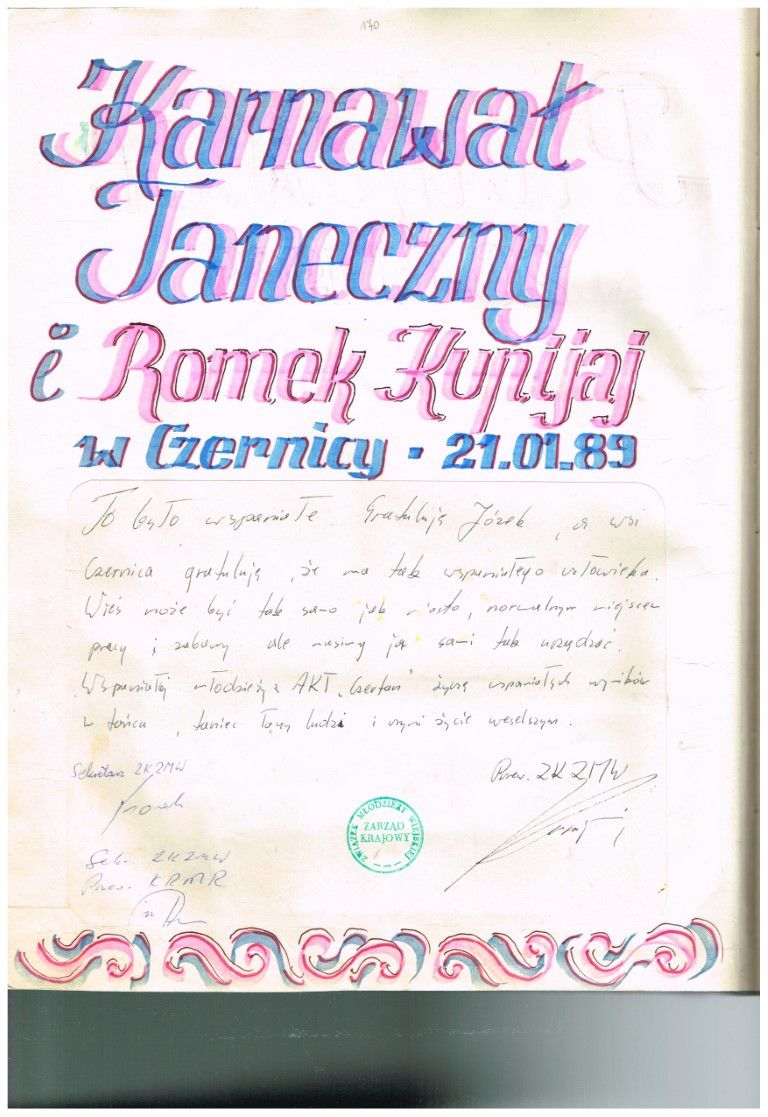 170
Karnawał
Taneczny
i Romek Kupijaj
w Czernicy · 21.01.89
To było wspaniałe. Gratuluję Józek, a wsi
Czernica gratuluję, że ma tak wspaniałego człowieka.
Wieś może być tak samo jak miasto, normalnym miejscem
pracy i zabawy ale musimy ją sami tak urządzać.
Wspaniałej młodzieży z AKT "Czertan" życzę wspaniałych wyników
w tańcu, taniec łączy ludzi i czyni życie weselszym.
Sekretarz ZK ZMW
Przew. ZK ZMW
ZWIĄZEK MŁODZIEŻY WIEJSKIEJ
ZARZĄD
KRAJOWY
Sekr. ZK ZMW
Przew. KRMR